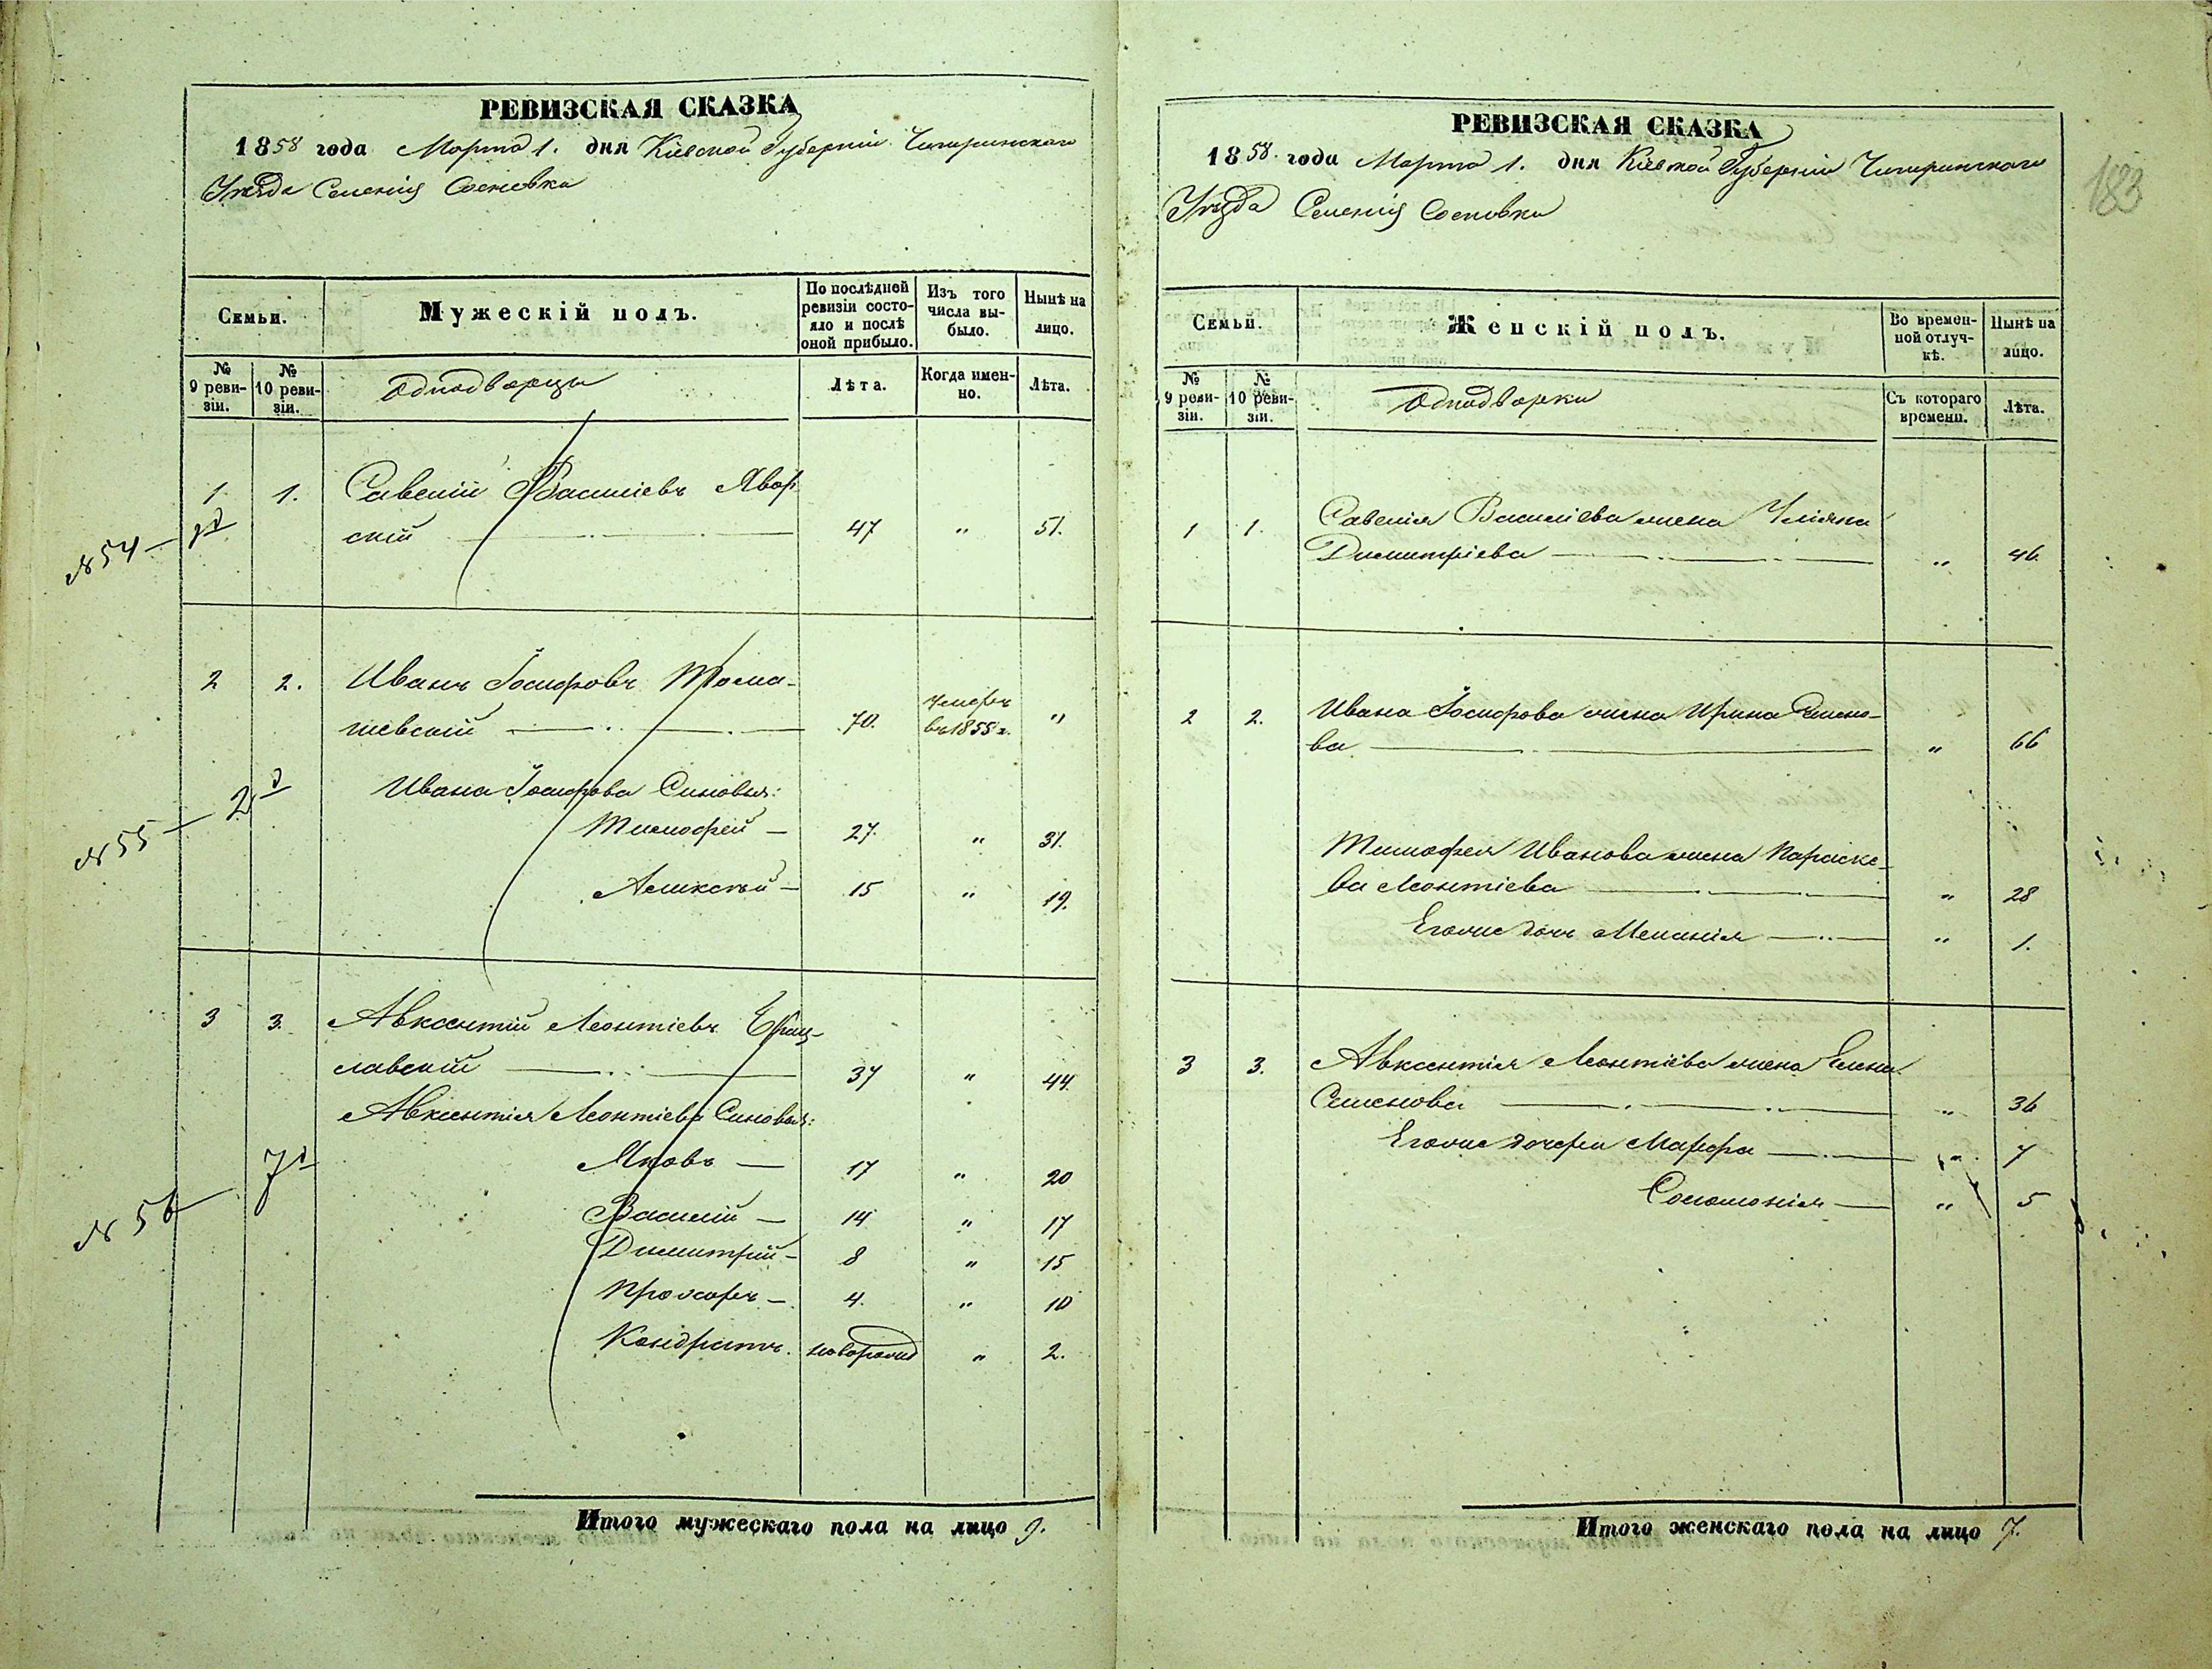 РЕВИЗСКАЯ СКАЗКА
1858 года Марта 1. дня Кіевской Губерніи Чигиринскаго
Уѣзда Селенія Сосновки
Семьи.
Мужескій полъ.
По послѣдней ревизіи состояло и послѣ оной прибыло.
Изъ того числа выбыло.
Нынѣ на лицо.
№ 9 ревизіи.
№ 10 ревизіи.
Однодворцы
Лѣта.
Когда именно.
Лѣта.
1 1. Савелій Василіевъ Явор
№ 54 скій 47 " 51.
2 2. Иванъ Іосифовъ Тома-
шевскій 70. умеръ въ 1855 г. "
Ивана Іосифова Сыновья:
№ 55 2 Тимофей 27. " 31.
Алексѣй 15 " 19.
3 3. Авксентій Леонтіевъ
славскій 37 " 44.
Авксентія Леонтіева Сыновья:
Яковъ 17 " 20
№ 56 7 Василій 14 " 17
Димитрій 8 " 15
Прохоръ 4. " 10
Кондратъ. новорожд " 2.
Итого мужескаго пола на лицо 9.
РЕВИЗСКАЯ СКАЗКА
1858. года Марта 1. дня Кіевской Губерніи Чигиринскаго
Уѣзда Селенія Сосновки
183
Семьи.
Женскій полъ.
Во временной отлучкѣ.
Нынѣ на лицо.
№ 9 ревизіи.
№ 10 ревизіи.
Однодворки
Съ котораго времени.
Лѣта.
1 1. Савелія Василіева жена Уліяна
Димитріева " 46.
2 2. Ивана Іосифова жена Ирина
ва " 66
Тимофея Иванова жена Параске-
ва Леонтіева " 28
Его же дочь Меланія " 1.
3 3. Авксентія Леонтіева жена Елена
Семенова " 36
Его же дочери Марфа " 7
Соломонія " 5
Итого женскаго пола на лицо 7.